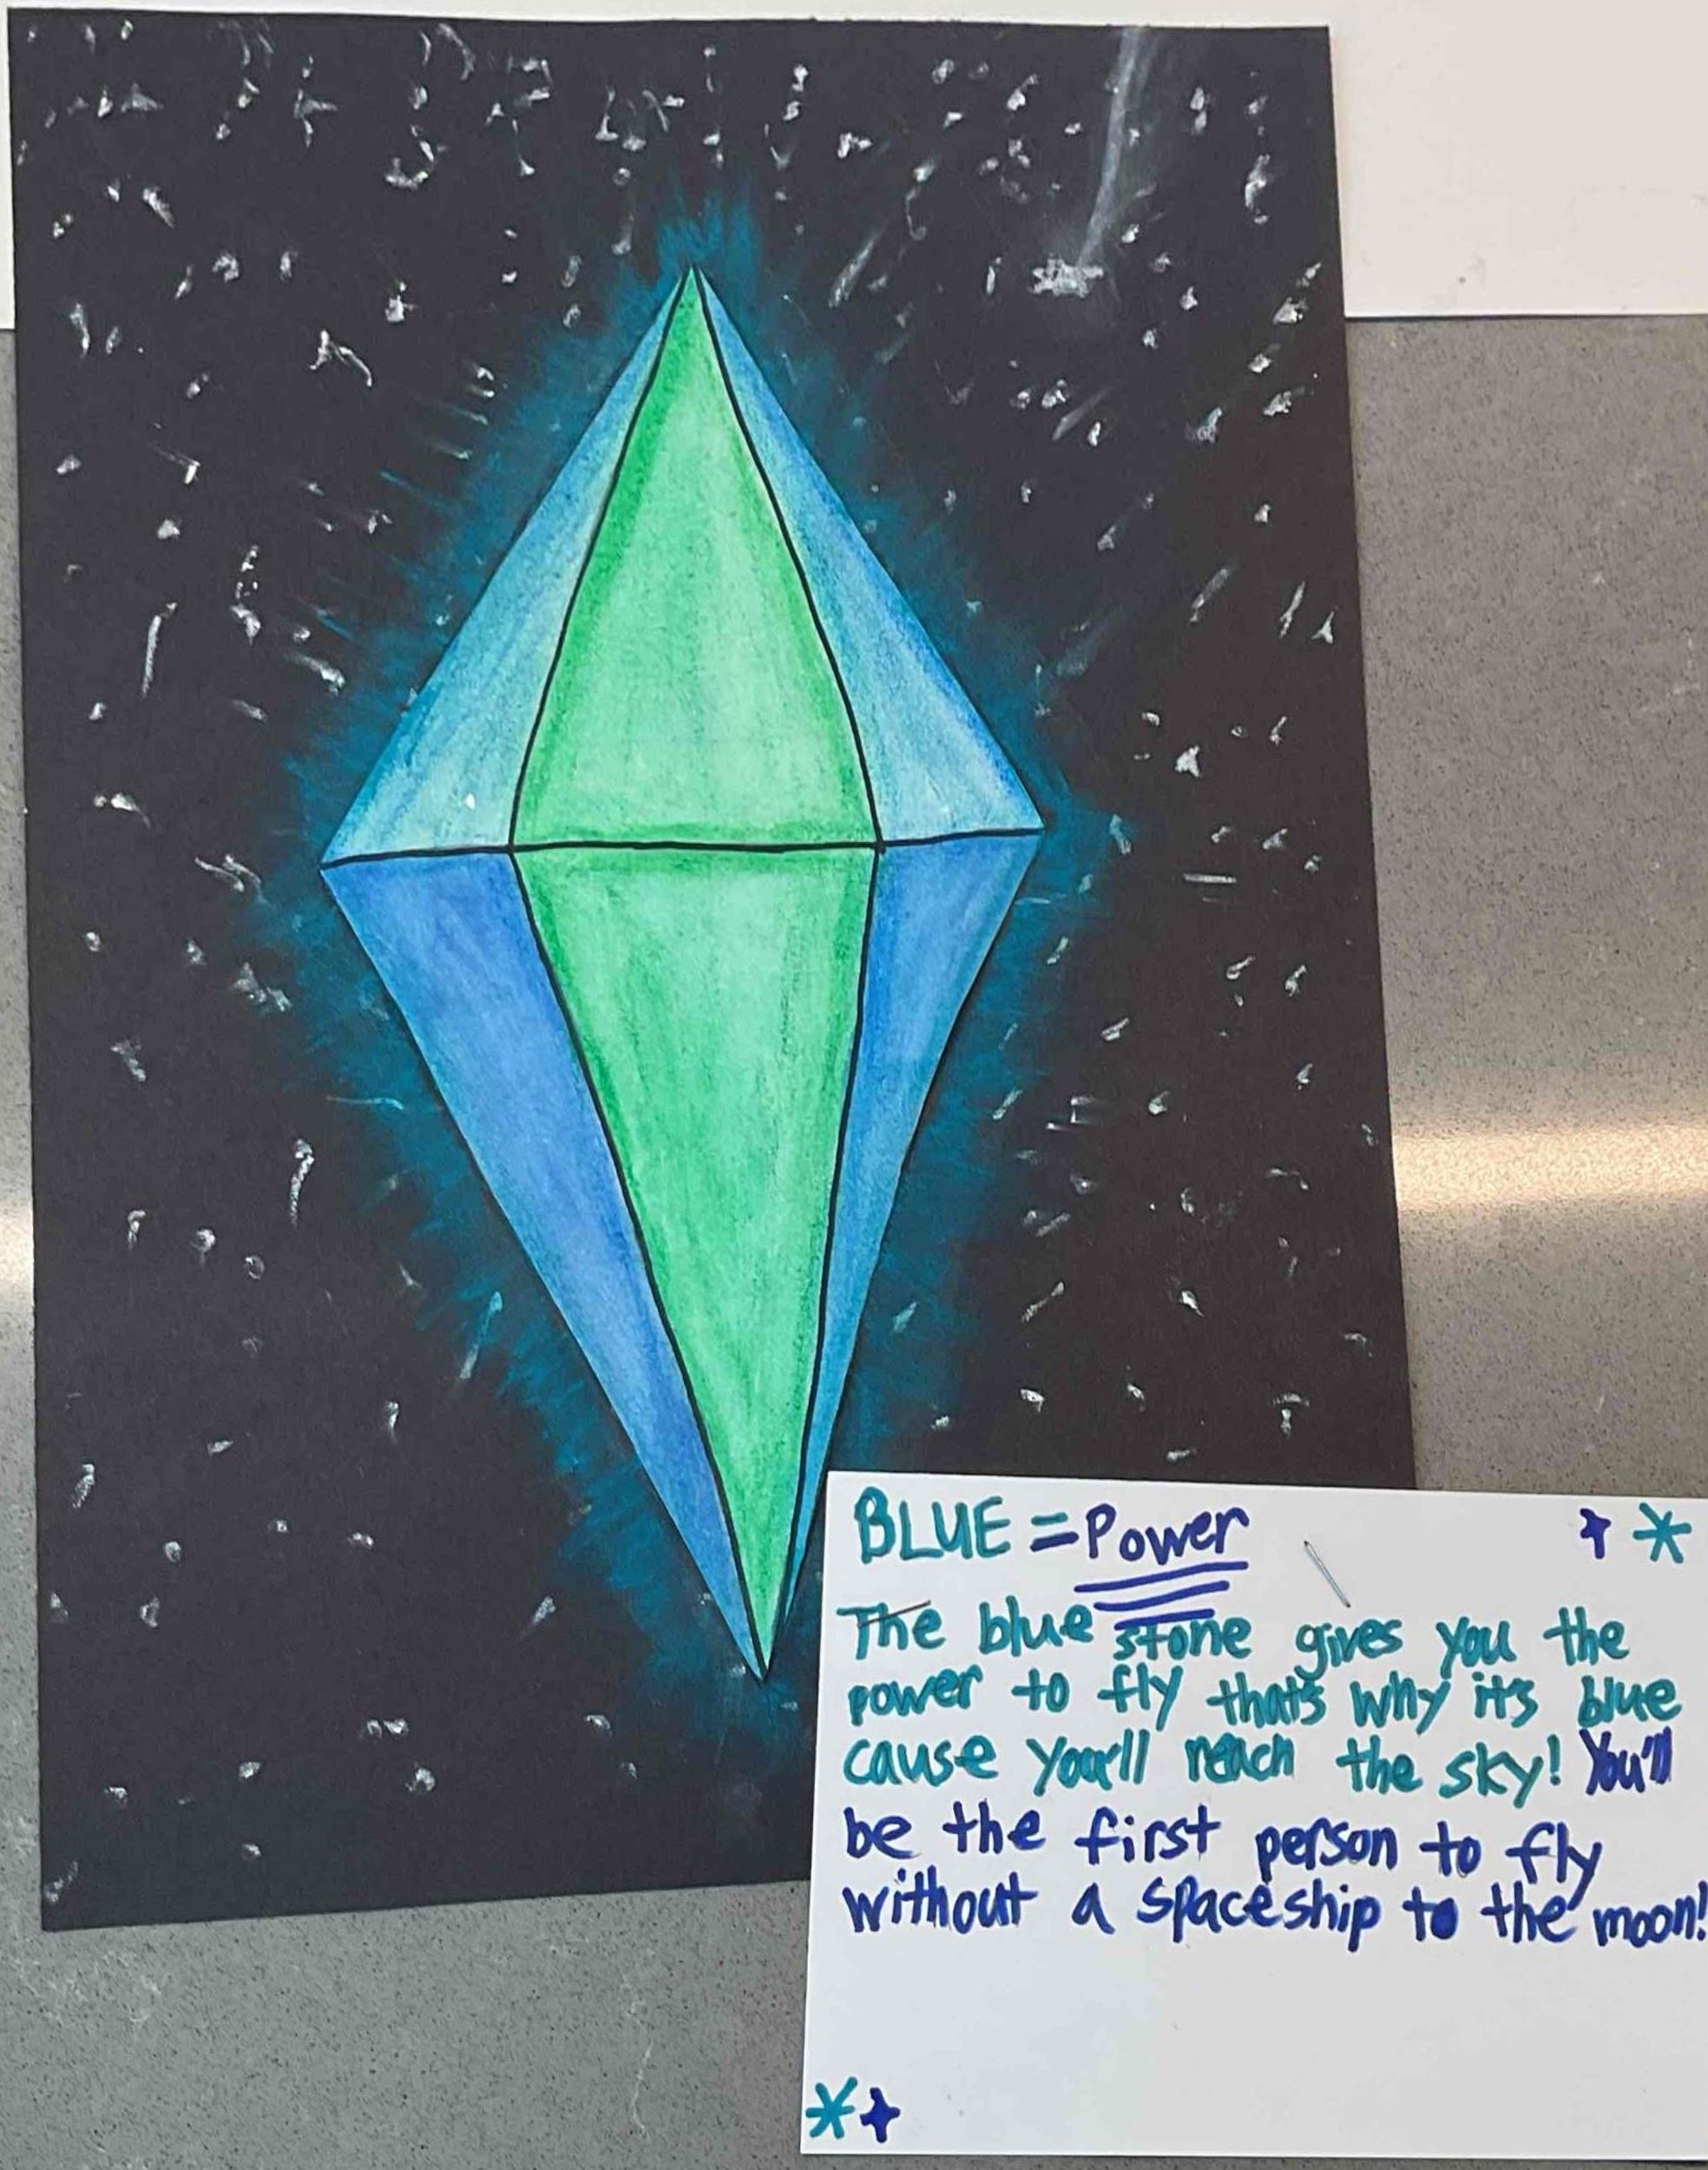 BLUE = Power
The blue stone gives you the
power to fly that's why it's blue
cause you'll reach the sky! You'll
be the first person to fly
without a spaceship to the moon!